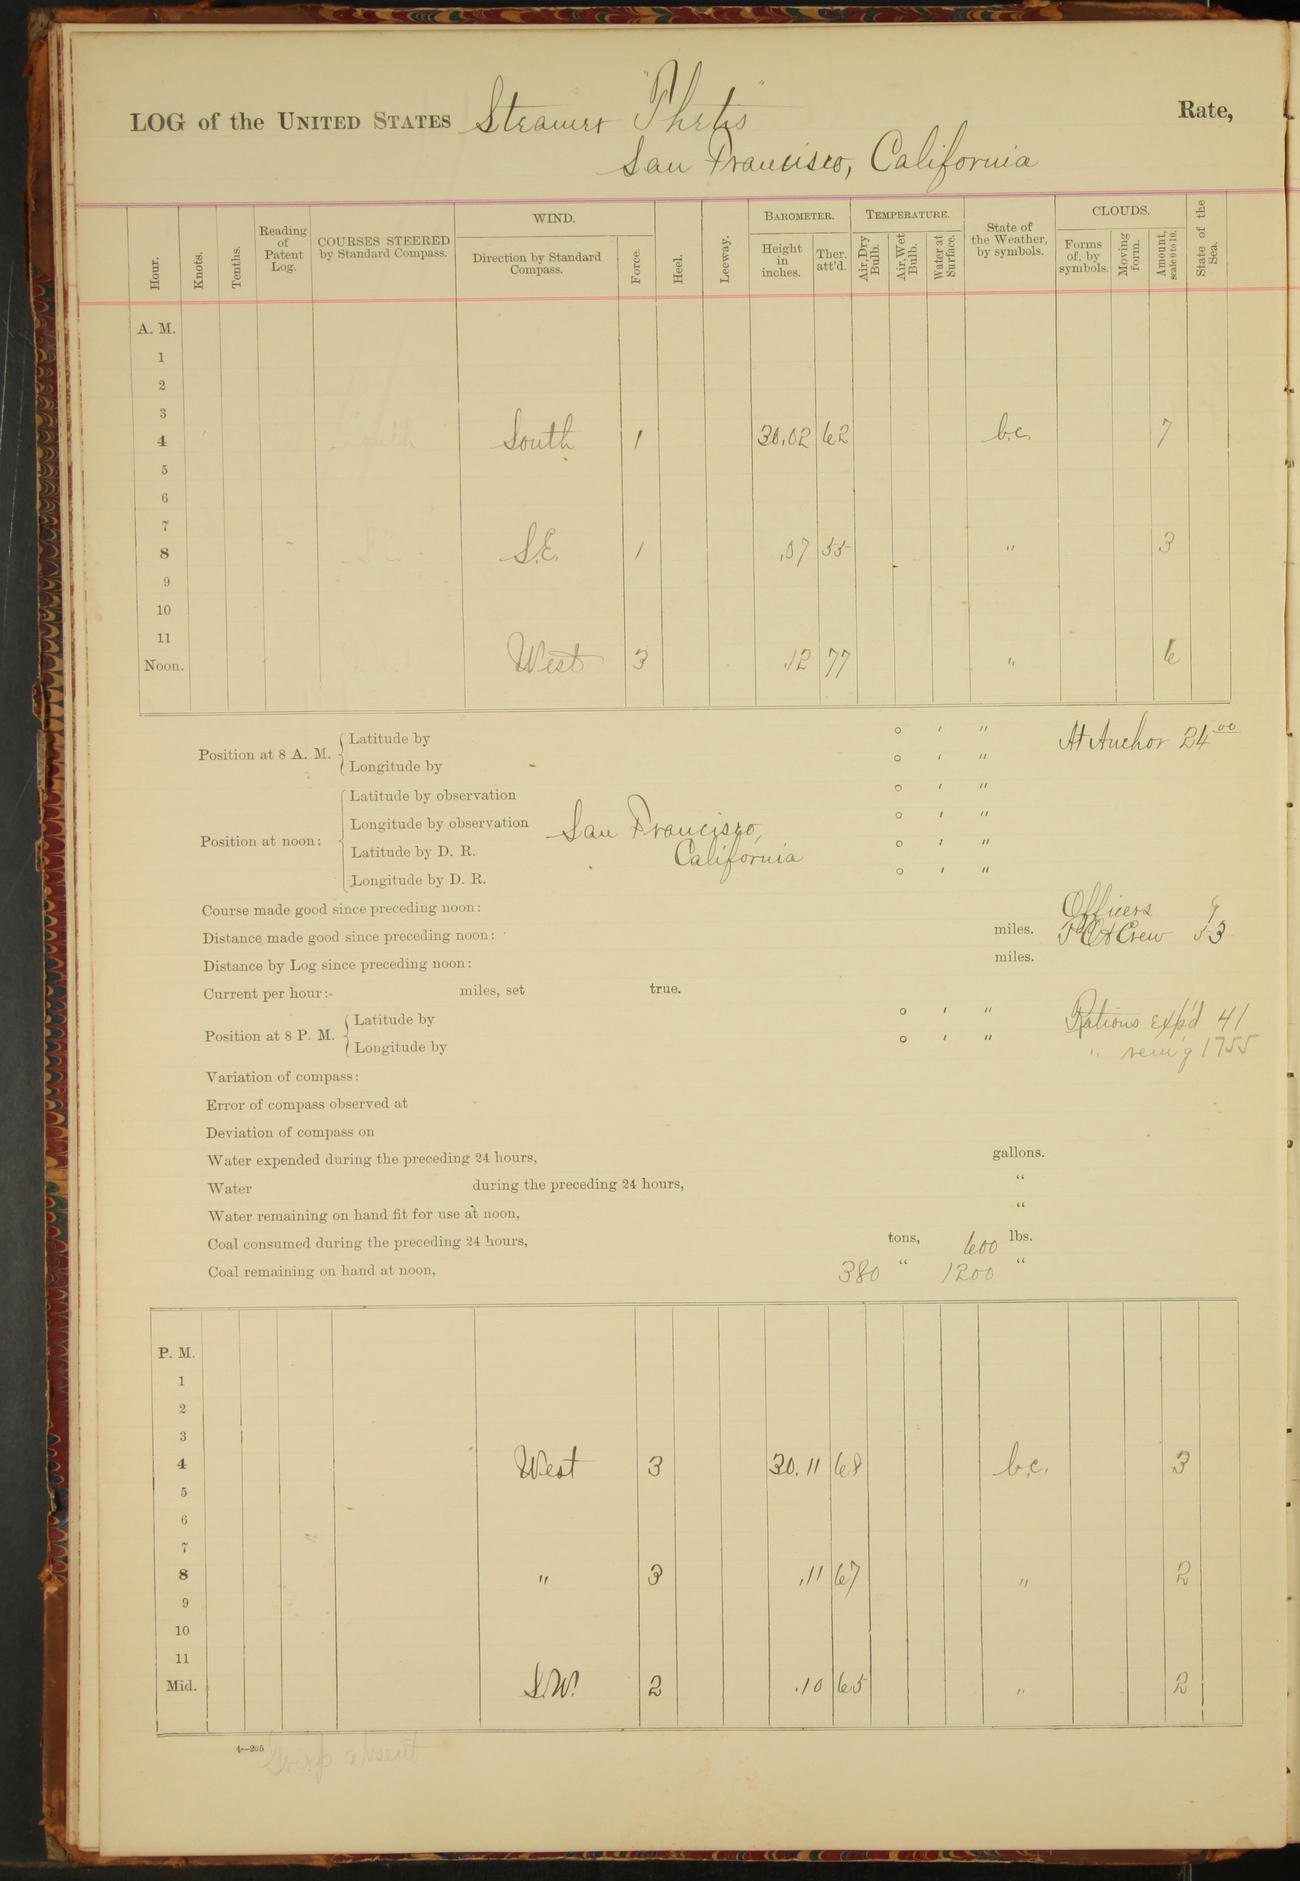 LOG of the UNITED STATES Steamer "Thetis" Rate,
San Francisco, California
Hour. Knots. Tenths. Reading of Patent Log. COURSES STEERED by Standard Compass. WIND. Direction by Standard Compass. Force. Heel. Leeway. BAROMETER. Height in inches. Ther. att'd. TEMPERATURE. Air, Dry Bulb. Air, Wet Bulb. Water at Surface. State of the Weather, by symbols. CLOUDS. Forms of, by symbols. Moving form. Amount, scale 0 to 10. State of the Sea.
A. M.
1
2
3
4 South 1 30.02 62 b.c. 7
5
6
7
8 S.E. 1 .07 55 " 3
9
10
11
Noon. West 3 .12 77 " 6
Position at 8 A. M. Latitude by ° ' " At Anchor 24 00
Longitude by ° ' "
Position at noon: Latitude by observation ° ' "
Longitude by observation San Francisco, ° ' "
Latitude by D. R. California ° ' "
Longitude by D. R. ° ' "
Course made good since preceding noon: Officers 9
Distance made good since preceding noon: miles. P.O. & Crew 53
Distance by Log since preceding noon: miles.
Current per hour: miles, set true.
Position at 8 P. M. Latitude by ° ' " Rations exp'd 41
Longitude by ° ' " " rem'g 1755
Variation of compass:
Error of compass observed at
Deviation of compass on
Water expended during the preceding 24 hours, gallons.
Water during the preceding 24 hours, "
Water remaining on hand fit for use at noon, "
Coal consumed during the preceding 24 hours, tons, 600 lbs.
Coal remaining on hand at noon, 380 " 1200 "
P. M.
1
2
3
4 West 3 30.11 68 b.c. 3
5
6
7
8 " 3 .11 67 " 2
9
10
11
Mid. S.W. 2 .10 65 " 2
4—265
absent